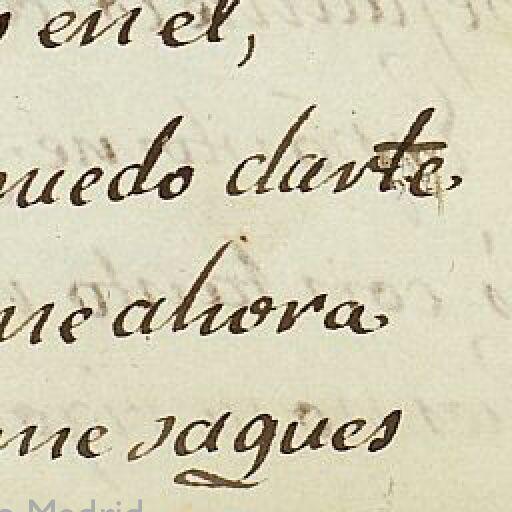 en el,
puedo darte
me ahora
me saques
Madrid